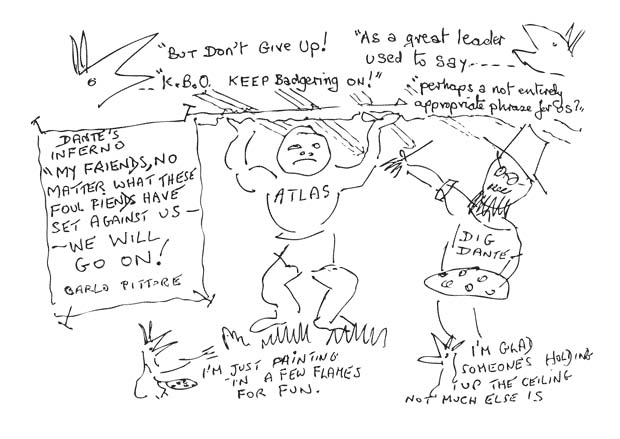 "BUT DON'T GIVE UP!
"K.B.O. KEEP Badgering ON!"
"As a great leader
used to say------
"perhaps a not entirely
appropriate phrase for us?"
DANTE'S
INFERNO
"MY FRIENDS, NO
MATTER WHAT THESE
FOUL FIENDS HAVE
SET AGAINST US —
— WE WILL
GO ON!
CARLO PITTORE
ATLAS
DIG
DANTE
I'M JUST PAINTING
IN A FEW FLAMES
FOR FUN.
I'M GLAD
SOMEONE'S HOLDING
UP THE CEILING
NOT MUCH ELSE IS